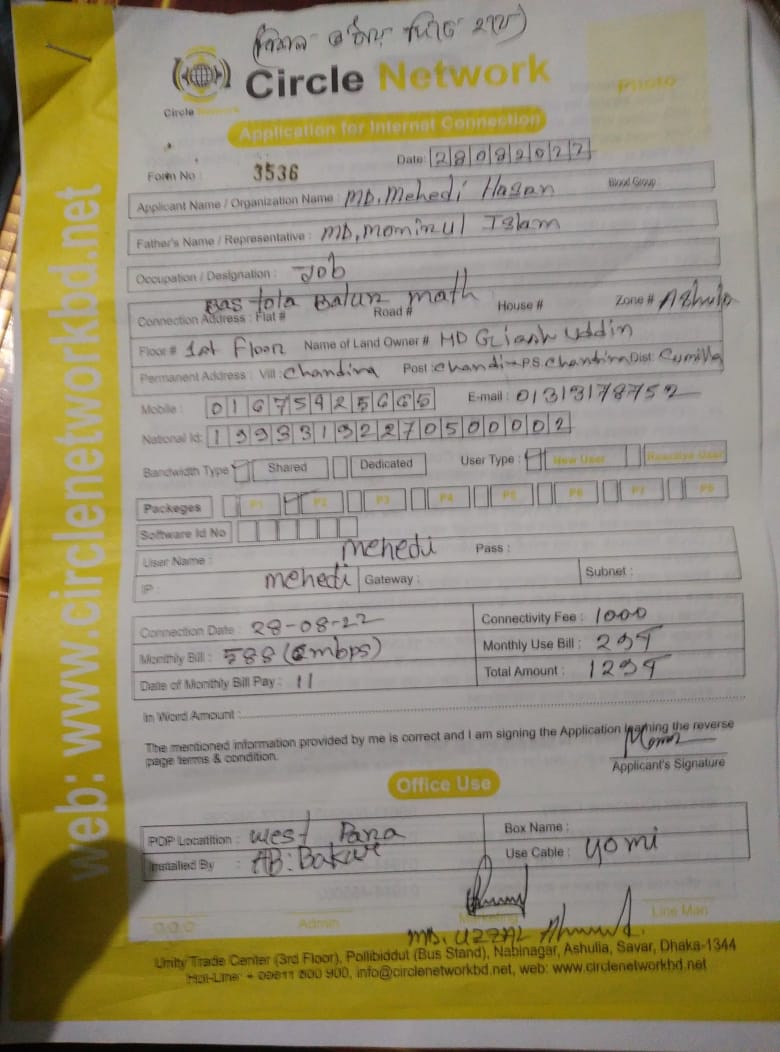 Circle Network
Circle Network
PHOTO
Application for Internet Connection
Form No : 3536 Date: 28082022
Applicant Name / Organization Name : MD. Mehedi Hasan Blood Group :
Father's Name / Representative : MD. Mominul Islam
Occupation / Designation : Job
Bas tola Balur math
Connection Address : Flat # Road # House # Zone # Ashulia
Floor # 1st Floor Name of Land Owner # MD Uddin
Permanent Address : Vill : Chandina Post : Chandi PS. Chandina Dist: Cumilla
Mobile : 01675425665 E-mail : 01313178752
National Id: 19933192270500002
Bandwidth Type Shared Dedicated User Type : New User Reactive User
Packeges P1 P2 P3 P4 P5 P6 P7 P8
Software Id No
User Name : mehedi Pass :
IP : mehedi Gateway : Subnet :
Connection Date : 28-08-22 Connectivity Fee : 1000
Monthly Bill : 588 (6mbps) Monthly Use Bill : 299
Date of Monthly Bill Pay : 11 Total Amount : 1299
In Word Amount :
The mentioned information provided by me is correct and I am signing the Application learning the reverse
page terms & condition.
Applicant's Signature
Office Use
POP Locatition : West Para Box Name :
Installed By : AB: Bakar Use Cable : 40mi
C.C.C Admin Marketing Line Man
MD. UZZAL Ahmmed.
Unity Trade Center (3rd Floor), Pollibiddut (Bus Stand), Nabinagar, Ashulia, Savar, Dhaka-1344
Hot-Line: + 09611 800 900, info@circlenetworkbd.net, web: www.circlenetworkbd.net
web: www.circlenetworkbd.net